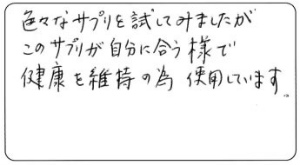 色々なサプリを試してみましたが
このサプリが自分に合う様で
健康を維持の為 使用しています。